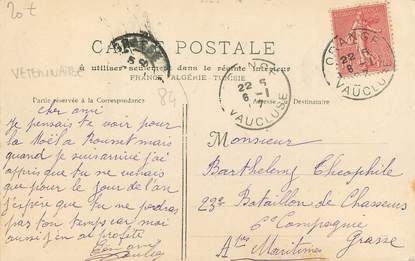 20 €
CARTE POSTALE
A utiliser seulement dans le régime intérieur
FRANCE, ALGÉRIE, TUNISIE
VETERINAIRE
84
ORANGE
22 5
6 -1
VAUCLUSE
ORANGE
22 5
6 -1
VAUCLUSE
Partie réservée à la Correspondance
Adresse du Destinataire
cher ami
Je pensais te voir pour
la Noël a Rousset mais
quand je suis arrivé j'ai
appris que tu ne venais
que pour le jour de l'an
j'espère que tu ne perdras
pas ton temps car moi
aussi j'en ai profité
Monsieur
Barthelemy Theophile
23e Bataillon de Chasseurs
6e Compagnie
Grasse
Alpes Maritimes